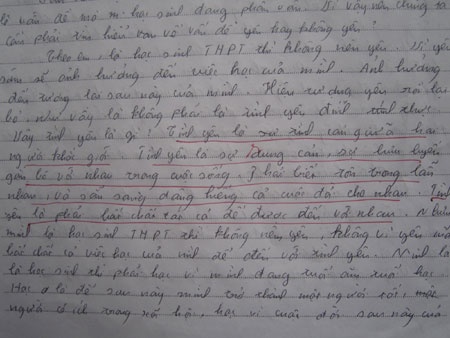 là vấn đề mà m học sinh đang phân vân. Vì vậy nên chúng ta
cần phải tìm hiểu xem về vấn đề yêu hay không yêu?
Theo em, là học sinh THPT thì không nên yêu. Vì yêu
sớm sẽ ảnh hưởng đến việc học của mình. Ảnh hưởng
đến tương lai sau này của mình. Hiện tượng yêu rồi lại
bỏ. Như vậy là không phải là tình yêu đích thực.
Vậy tình yêu là gì? Tình yêu là sự tình cảm giữa hai
người khác giới. Tình yêu là sự dung cảm, sự lưu luyến
gắn bó với nhau trong cuộc sống. phải biết tôn trọng lẫn
nhau, và sẵn sàng dâng hiến cả cuộc đời cho nhau. Tình
yêu là phải bất chấp tất cả để được đến với nhau. Nhưng
mình là học sinh THPT thì không nên yêu. Không vì yêu mà
bỏ cả việc học của mình để đến với tình yêu. Mình là
là học sinh thì phải học vì mình đang tuổi ăn tuổi học.
Học là để sau này mình trở thành một người tốt, một
người có ích trong xã hội, học vì cuộc đời sau này của